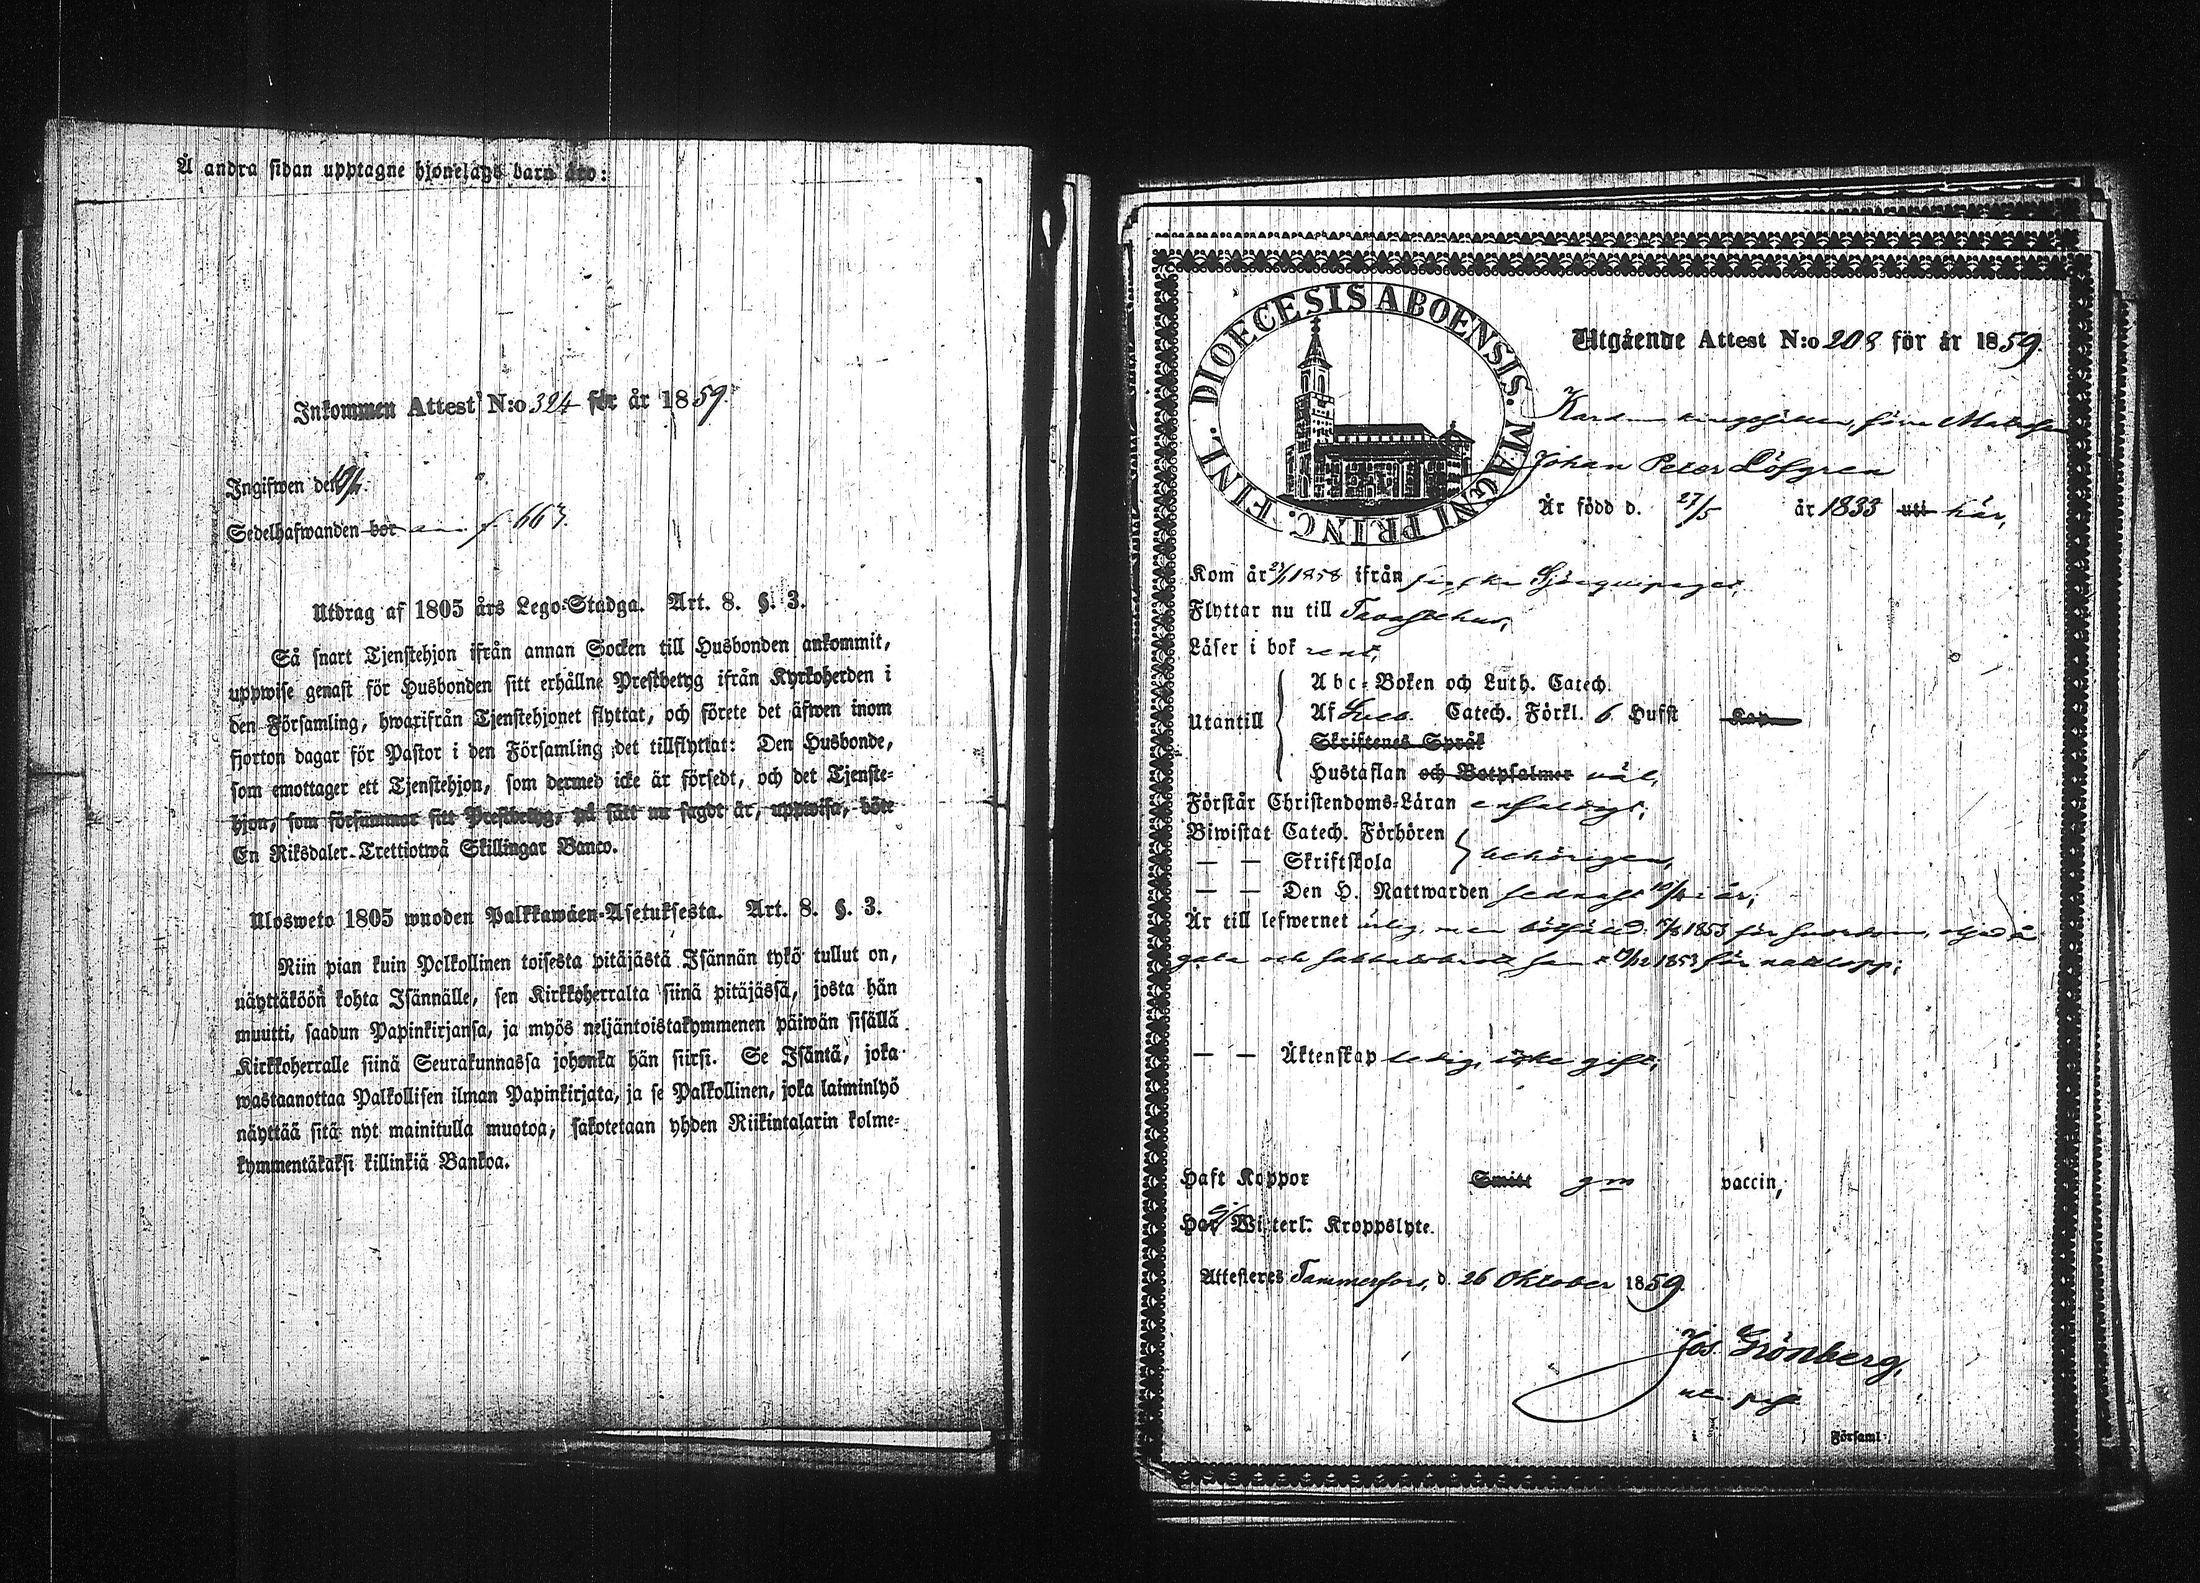 Å andra sidan upptagne hjonelags barn äro:
Inkommen Attest N:o 324 för år 1859.
Ingifwen den
Sedelhafwanden bor f. 663.
Utdrag af 1805 års Lego-Stadga. Art. 8. §. 3.
Så snart Tjenstehjon ifrån annan Socken till Husbonden ankommit,
uppwise genast för Husbonden sitt erhållne Prestbetyg ifrån Kyrkoherden i
den Församling, hwarifrån Tjenstehjonet flyttat, och förete det äfwen inom
fjorton dagar för Pastor i den Församling det tillflyttat: Den Husbonde,
som emottager ett Tjenstehjon, som dermed icke är försedt, och det Tjenste-
hjon, som försummar sitt Prestbetyg, på sätt nu sagdt är, uppwisa, böte
En Riksdaler Trettiotwå Skillingar Banco.
Ulosweto 1805 wuoden Palkkawäen-Asetuksesta. Art. 8. §. 3.
Niin pian kuin Palkollinen toisesta pitäjästä Isännän tykö tullut on,
näyttäköön kohta Isännälle, sen Kirkkoherralta siinä pitäjässä, josta hän
muutti, saadun Papinkirjansa, ja myös neljäntoistakymmenen päiwän sisällä
Kirkkoherralle siinä Seurakunnassa johonka hän siirsi. Se Isäntä, joka
wastaanottaa Palkollisen ilman Papinkirjata, ja se Palkollinen, joka laiminlyö
näyttää sitä nyt mainitulla muotoa, sakotetaan yhden Riikintalarin kolme-
kymmentäkaksi killinkiä Bankoa.
DIOECESIS ABOENSIS. MAGNI PRINC. FINL.
Utgående Attest N:o 208 för år 1859.
förre Matrosen
Johan Peter Löfgren
Är född d. 27/5 år 1833 uti här,
Kom år 1858 ifrån Sjöequipaget,
Flyttar nu till Tavastehus,
Läser i bok rent,
Utantill
Abc-Boken och Luth. Catech.
Af Sveb. Catech. Förkl. 6 Hufst Kap.
Skriftenes Språk
Hustaflan och Botpsalmer väl,
Förstår Christendoms-Läran enfaldigt,
Biwistat Catech. Förhören
— — Skriftskola behörigen,
— — Den H. Nattwarden sednast i år,
Är till lefwernet ärlig, men bötfäld 1853 för
och 1853 för
— — Äktenskap ledig, icke gift,
Haft Koppor Smitt gm vaccin,
Har Witterl. Kroppslyte.
Attesteres Tammerfors, d. 26 Oktober 1859.
Jos. Grönberg,
i Församl.